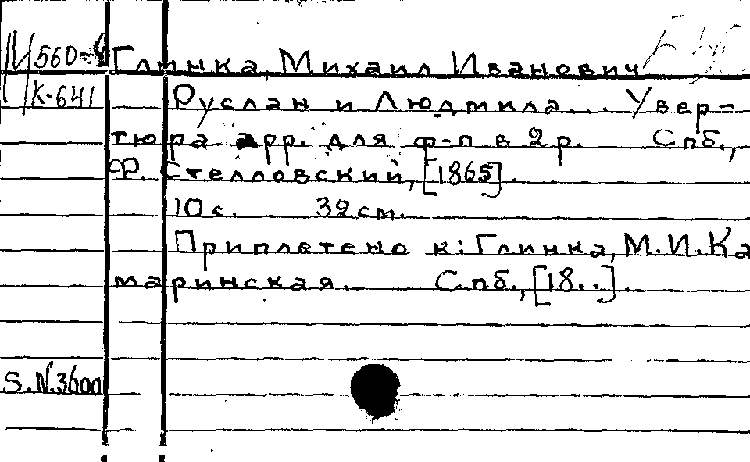 М560-4 Глинка, Михаил Иванович
К-641 Руслан и Людмила... Увер-
тюра арр. для ф-п в 2 р. Спб.,
Ф. Стелловский, [1865].
10 с. 32 см.
Приплетено к: Глинка, М.И. Ка
маринская. Спб., [18..].
S.N.3600